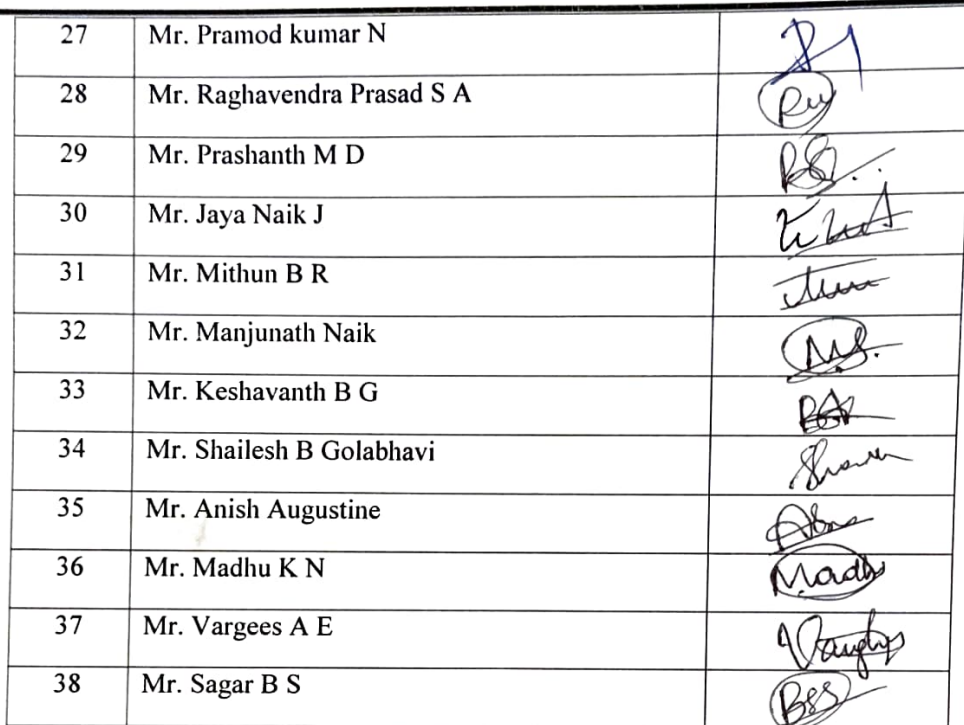 27 Mr. Pramod kumar N
28 Mr. Raghavendra Prasad S A
29 Mr. Prashanth M D
30 Mr. Jaya Naik J
31 Mr. Mithun B R
32 Mr. Manjunath Naik
33 Mr. Keshavanth B G
34 Mr. Shailesh B Golabhavi
35 Mr. Anish Augustine
36 Mr. Madhu K N Madhu
37 Mr. Vargees A E
38 Mr. Sagar B S BSS